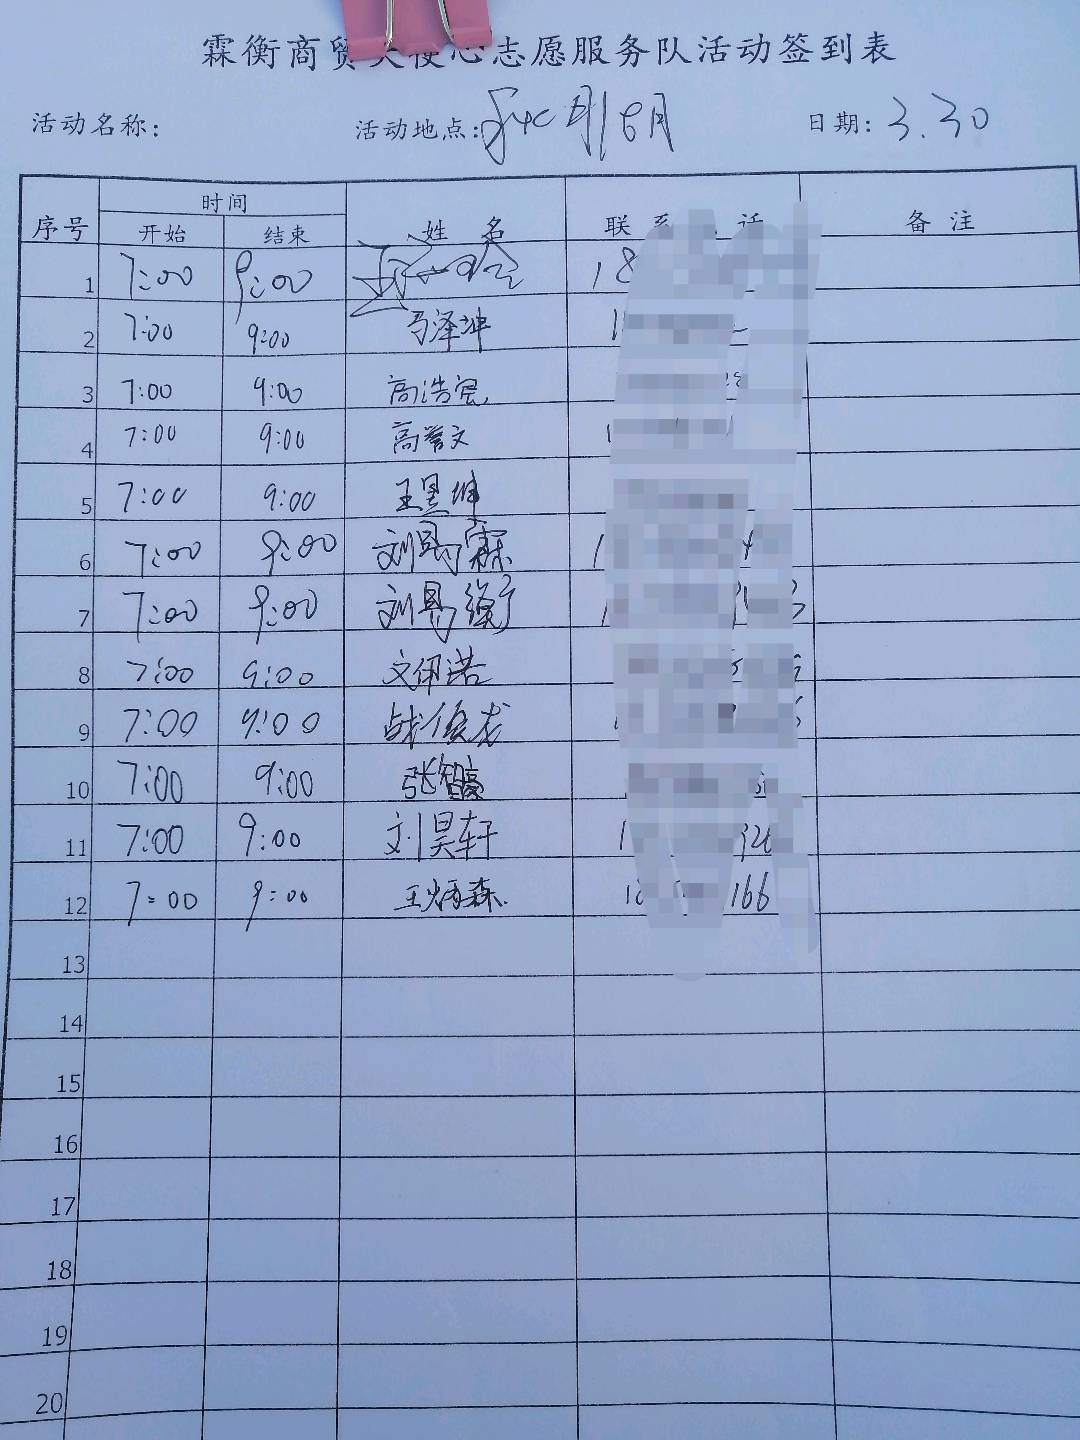 霖衡商贸天使心志愿服务队活动签到表
活动名称: 活动地点: 日期: 3.30
序号 时间 姓 名 联 系 话 备 注
开始 结束
1 7:00 9:00 18
2 7:00 9:00 马泽坤 1
3 7:00 9:00 高浩宸
4 7:00 9:00 高誉文 1
5 7:00 9:00 王昱坤
6 7:00 9:00 刘易霖 1 4
7 7:00 9:00 刘易衡 1
8 7:00 9:00 文伊诺
9 7:00 9:00 战俊龙
10 7:00 9:00 张智豪
11 7:00 9:00 刘昊轩 1 326
12 7:00 9:00 王炳森 18 166
13
14
15
16
17
18
19
20